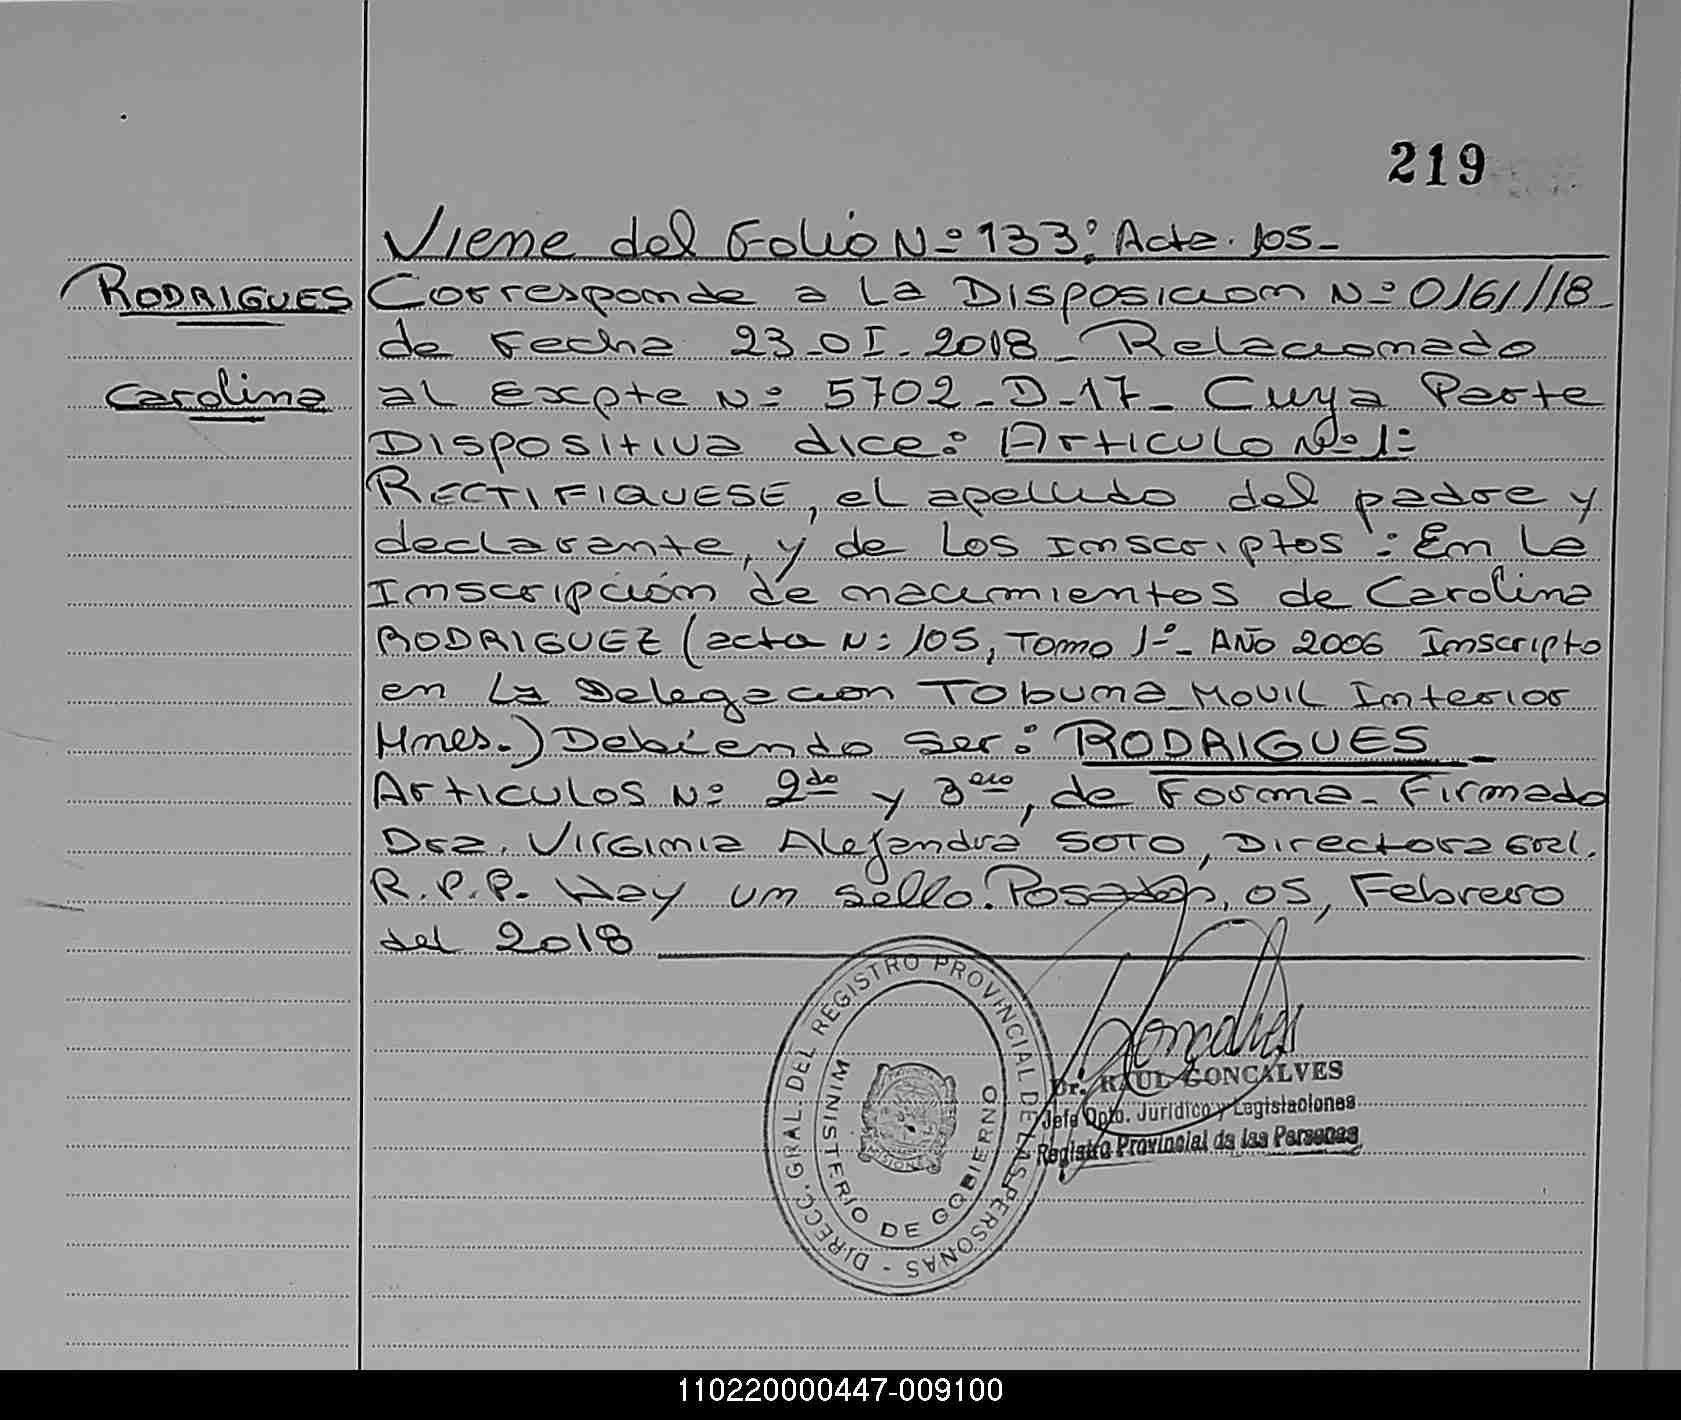 219
Viene del Folio Nº 133: Acta. 105-
RODRIGUES
Carolina
Corresponde a La Disposicion Nº 0161/18
de Fecha 23-01-2018- Relacionado
al Expte Nº 5702-D-17- Cuya Parte
Dispositiva dice: Articulo Nº 1:
RECTIFIQUESE, el apellido del padre y
declarante, y de Los Inscriptos: En La
Inscripción de nacimientos de Carolina
RODRIGUEZ (acta Nº 105, Tomo 1º- AÑO 2006 Inscripto
en La Delegacion Tobuna-Movil Interior
Mnes.) Debiendo ser: RODRIGUES-
Articulos Nº 2do y 3ero, de Forma- Firmado
Dra. Virginia Alejandra SOTO, Directora Gral.
R.P.P. Hay un sello. Posadas, 05, Febrero
del 2018
DIRECC. GRAL. DEL REGISTRO PROVINCIAL DE LAS PERSONAS -
MINISTERIO DE GOBIERNO
MISIONES
Dr. RAUL GONCALVES
Jefe Dpto. Jurídico y Legislaciones
Registro Provincial de las Personas
110220000447-009100